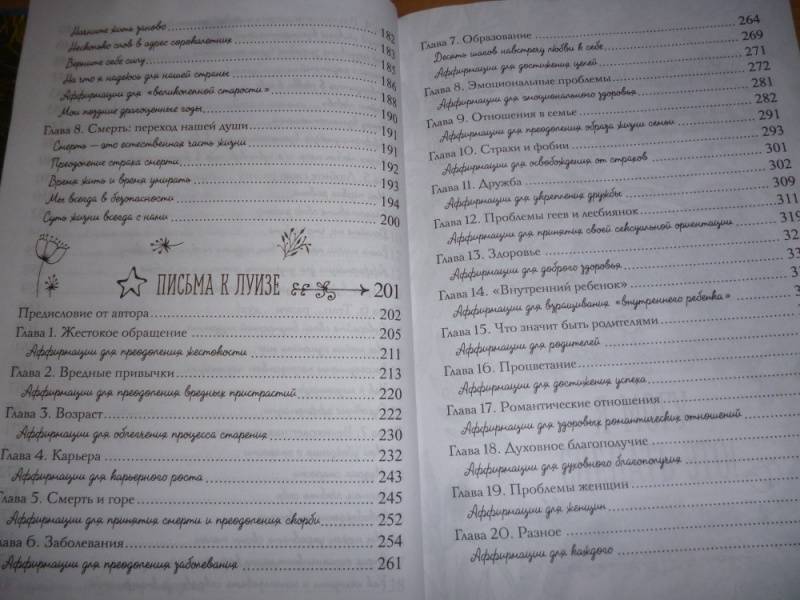 Начните жить заново 182
Несколько слов в адрес сорокалетних 183
Верните себе силу 185
На что я надеюсь для нашей страны 186
Аффирмации для «великолепной старости» 188
Мои поздние драгоценные годы 190
Глава 8. Смерть: переход нашей души 191
Смерть — это естественная часть жизни 191
Преодоление страха смерти 192
Время жить и время умирать 193
Мы всегда в безопасности 194
Суть жизни всегда с нами 200
ПИСЬМА К ЛУИЗЕ 201
Предисловие от автора 202
Глава 1. Жестокое обращение 205
Аффирмации для преодоления жестокости 211
Глава 2. Вредные привычки 213
Аффирмации для преодоления вредных пристрастий 220
Глава 3. Возраст 222
Аффирмации для облегчения процесса старения 230
Глава 4. Карьера 232
Аффирмации для карьерного роста 243
Глава 5. Смерть и горе 245
Аффирмации для принятия смерти и преодоления скорби 252
Глава 6. Заболевания 254
Аффирмации для преодоления заболевания 261
Глава 7. Образование 264
Десять шагов навстречу любви к себе 269
Аффирмации для достижения целей 271
Глава 8. Эмоциональные проблемы 272
Аффирмации для эмоционального здоровья 281
Глава 9. Отношения в семье 282
Аффирмации для преодоления образа жизни семьи 291
Глава 10. Страхи и фобии 293
Аффирмации для освобождения от страхов 301
Глава 11. Дружба 302
Аффирмации для укрепления дружбы 309
Глава 12. Проблемы геев и лесбиянок 311
Аффирмации для принятия своей сексуальной ориентации 319
Глава 13. Здоровье
Аффирмации для доброго здоровья
Глава 14. «Внутренний ребенок»
Аффирмации для взращивания «внутреннего ребенка»
Глава 15. Что значит быть родителями
Аффирмации для родителей
Глава 16. Процветание
Аффирмации для достижения успеха
Глава 17. Романтические отношения
Аффирмации для здоровых романтических отношений
Глава 18. Духовное благополучие
Аффирмации для духовного благополучия
Глава 19. Проблемы женщин
Аффирмации для женщин
Глава 20. Разное
Аффирмации для каждого